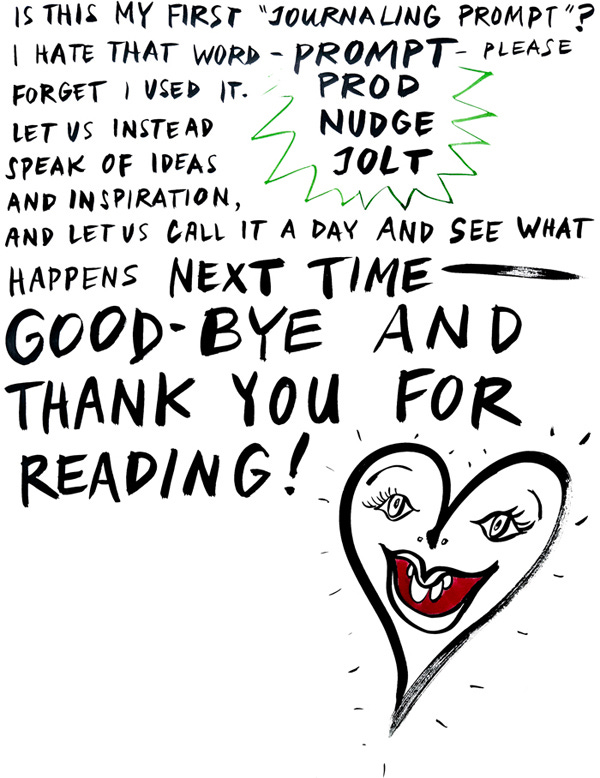 IS THIS MY FIRST "JOURNALING PROMPT"?
I HATE THAT WORD - PROMPT - PLEASE
FORGET I USED IT. PROD
LET US INSTEAD NUDGE
SPEAK OF IDEAS JOLT
AND INSPIRATION,
AND LET US CALL IT A DAY AND SEE WHAT
HAPPENS NEXT TIME —
GOOD-BYE AND
THANK YOU FOR
READING!